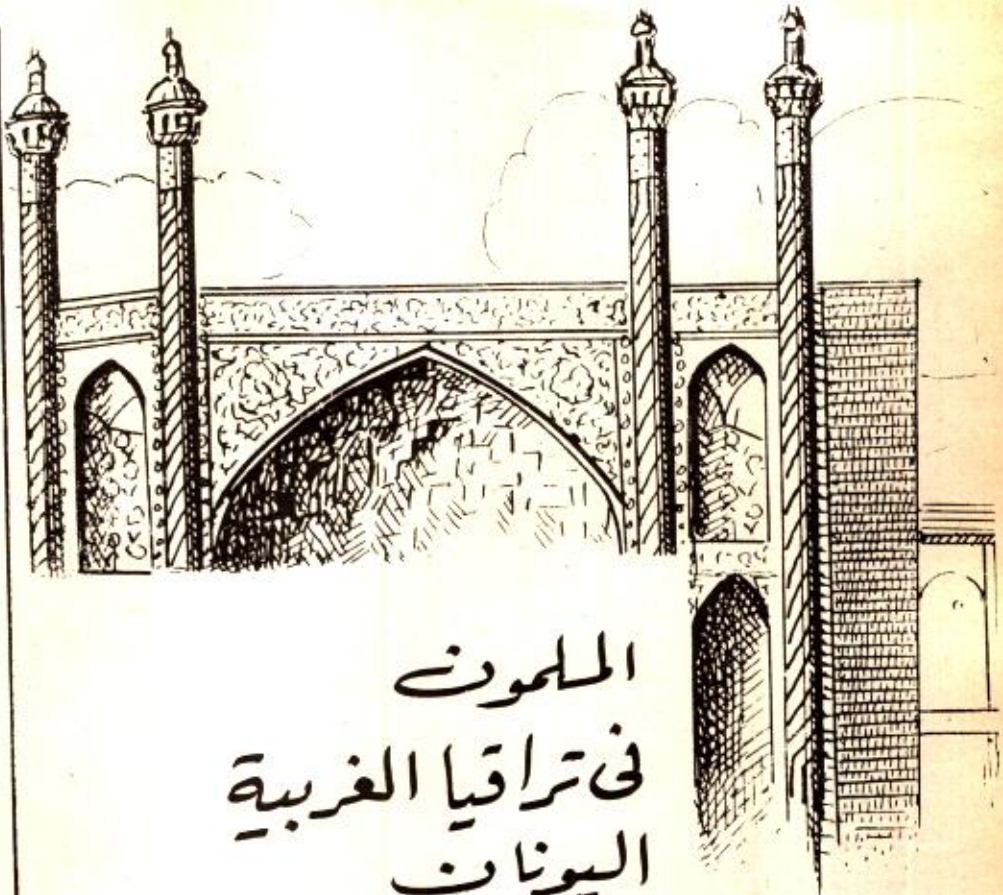 المسلمون
فى تراقيا الغربية
اليونان